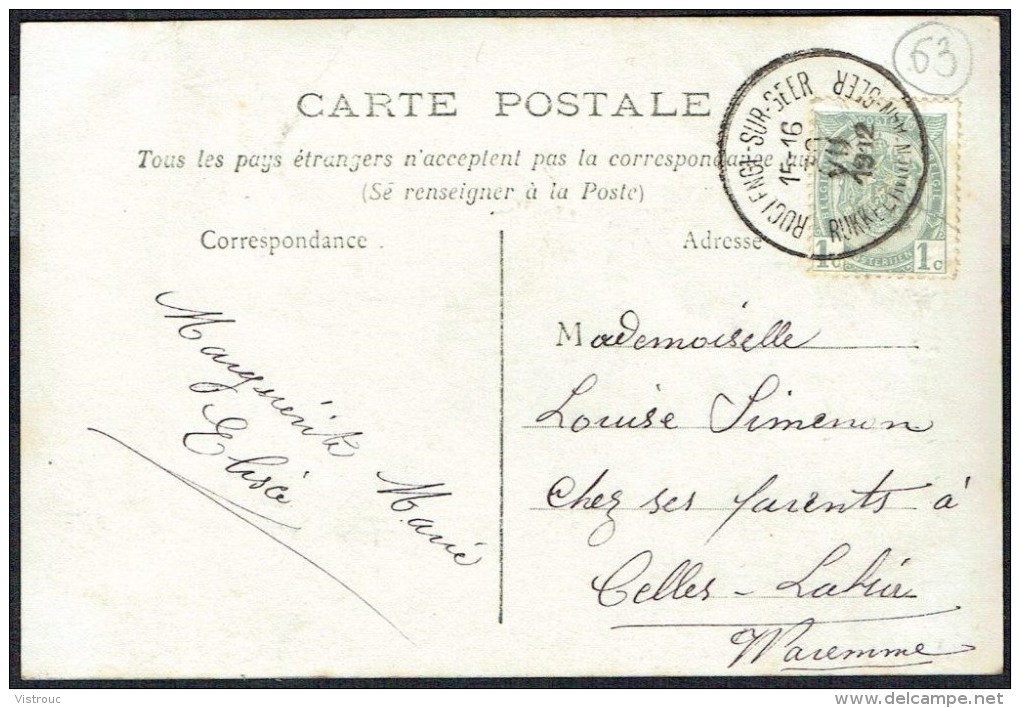 63
CARTE POSTALE
Tous les pays étrangers n'acceptent pas la correspondance au
(Se renseigner à la Poste)
ROCLENGE-SUR-GEER
15-16
VII
1912
1c 1c
Correspondance
Adresse
Marguérite Marié
Elisée
Mademoiselle
Louise Simenon
chez ses parents à
Celles-
Waremme
Vistrouc
delcampe.net